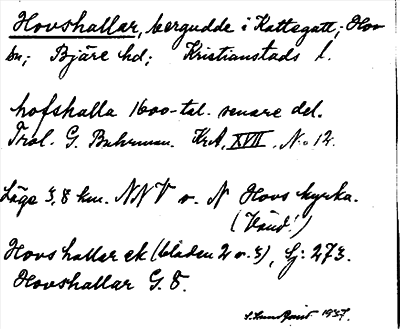 Hovshallar, bergudde i Kattegatt; Hov
sn; Bjäre hd; Kristianstads l.
hofshalla 1600-tal. senare del.
Trol. G. Buhrman. KrA, XVII, No 12.
Läge 3,8 km. NNV o. N Hovs kyrka.
(Vänd!)
Hovs hallar ek (bladen 2 o. 3), Sj: 273.
Hovshallar G. 8.
1937.